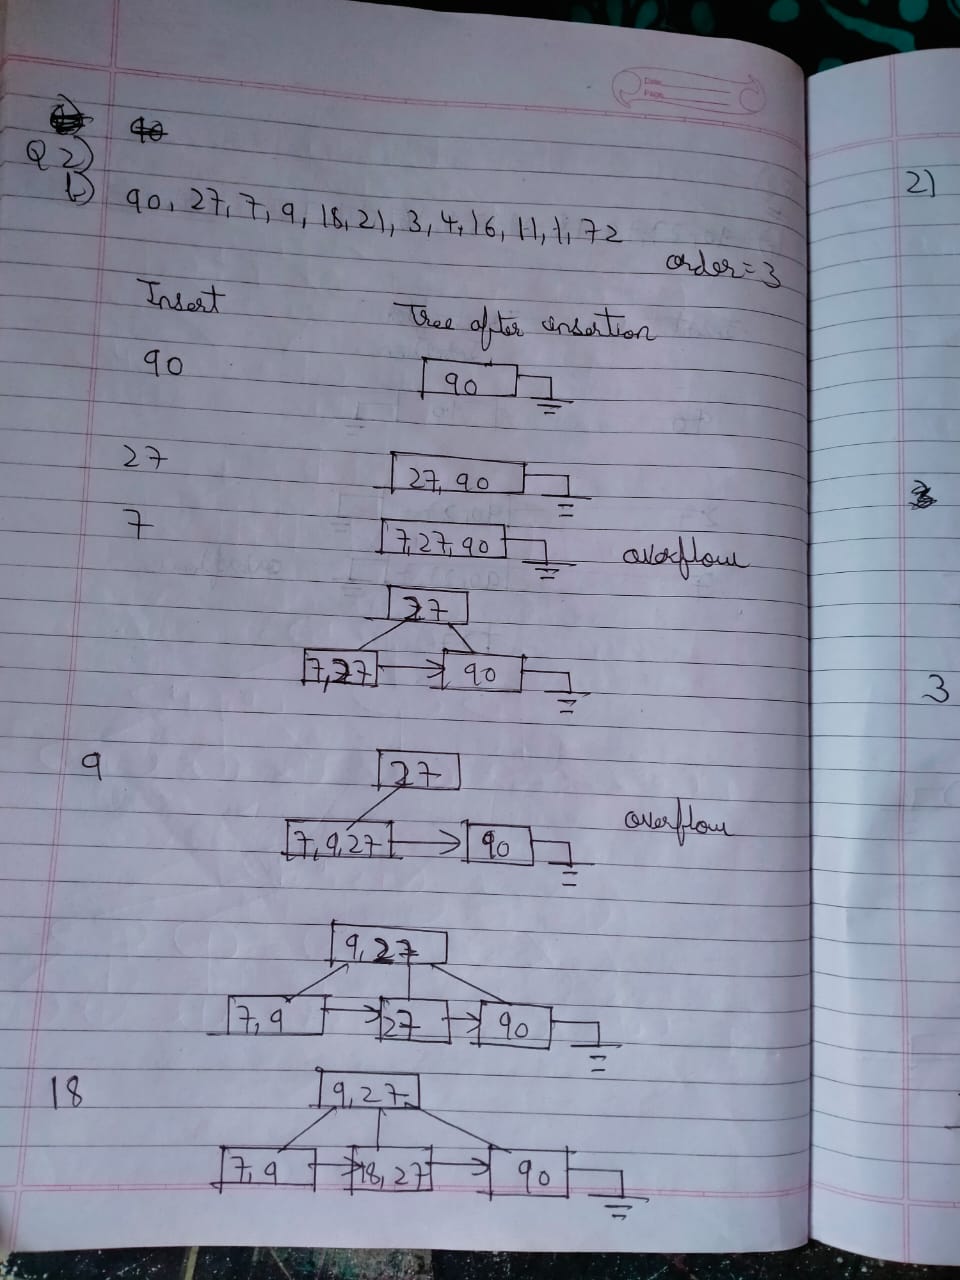 Date
Page
Q 2)
b) 90, 27, 7, 9, 18, 21, 3, 4, 16, 11, 1, 72
order = 3
Insert Tree after insertion
90 90
27 27, 90
7 7, 27, 90 overflow
27
7, 27 90
9 27
7, 9, 27 90 overflow
9, 27
7, 9 27 90
18 9, 27
7, 9 18, 27 90
2)
3